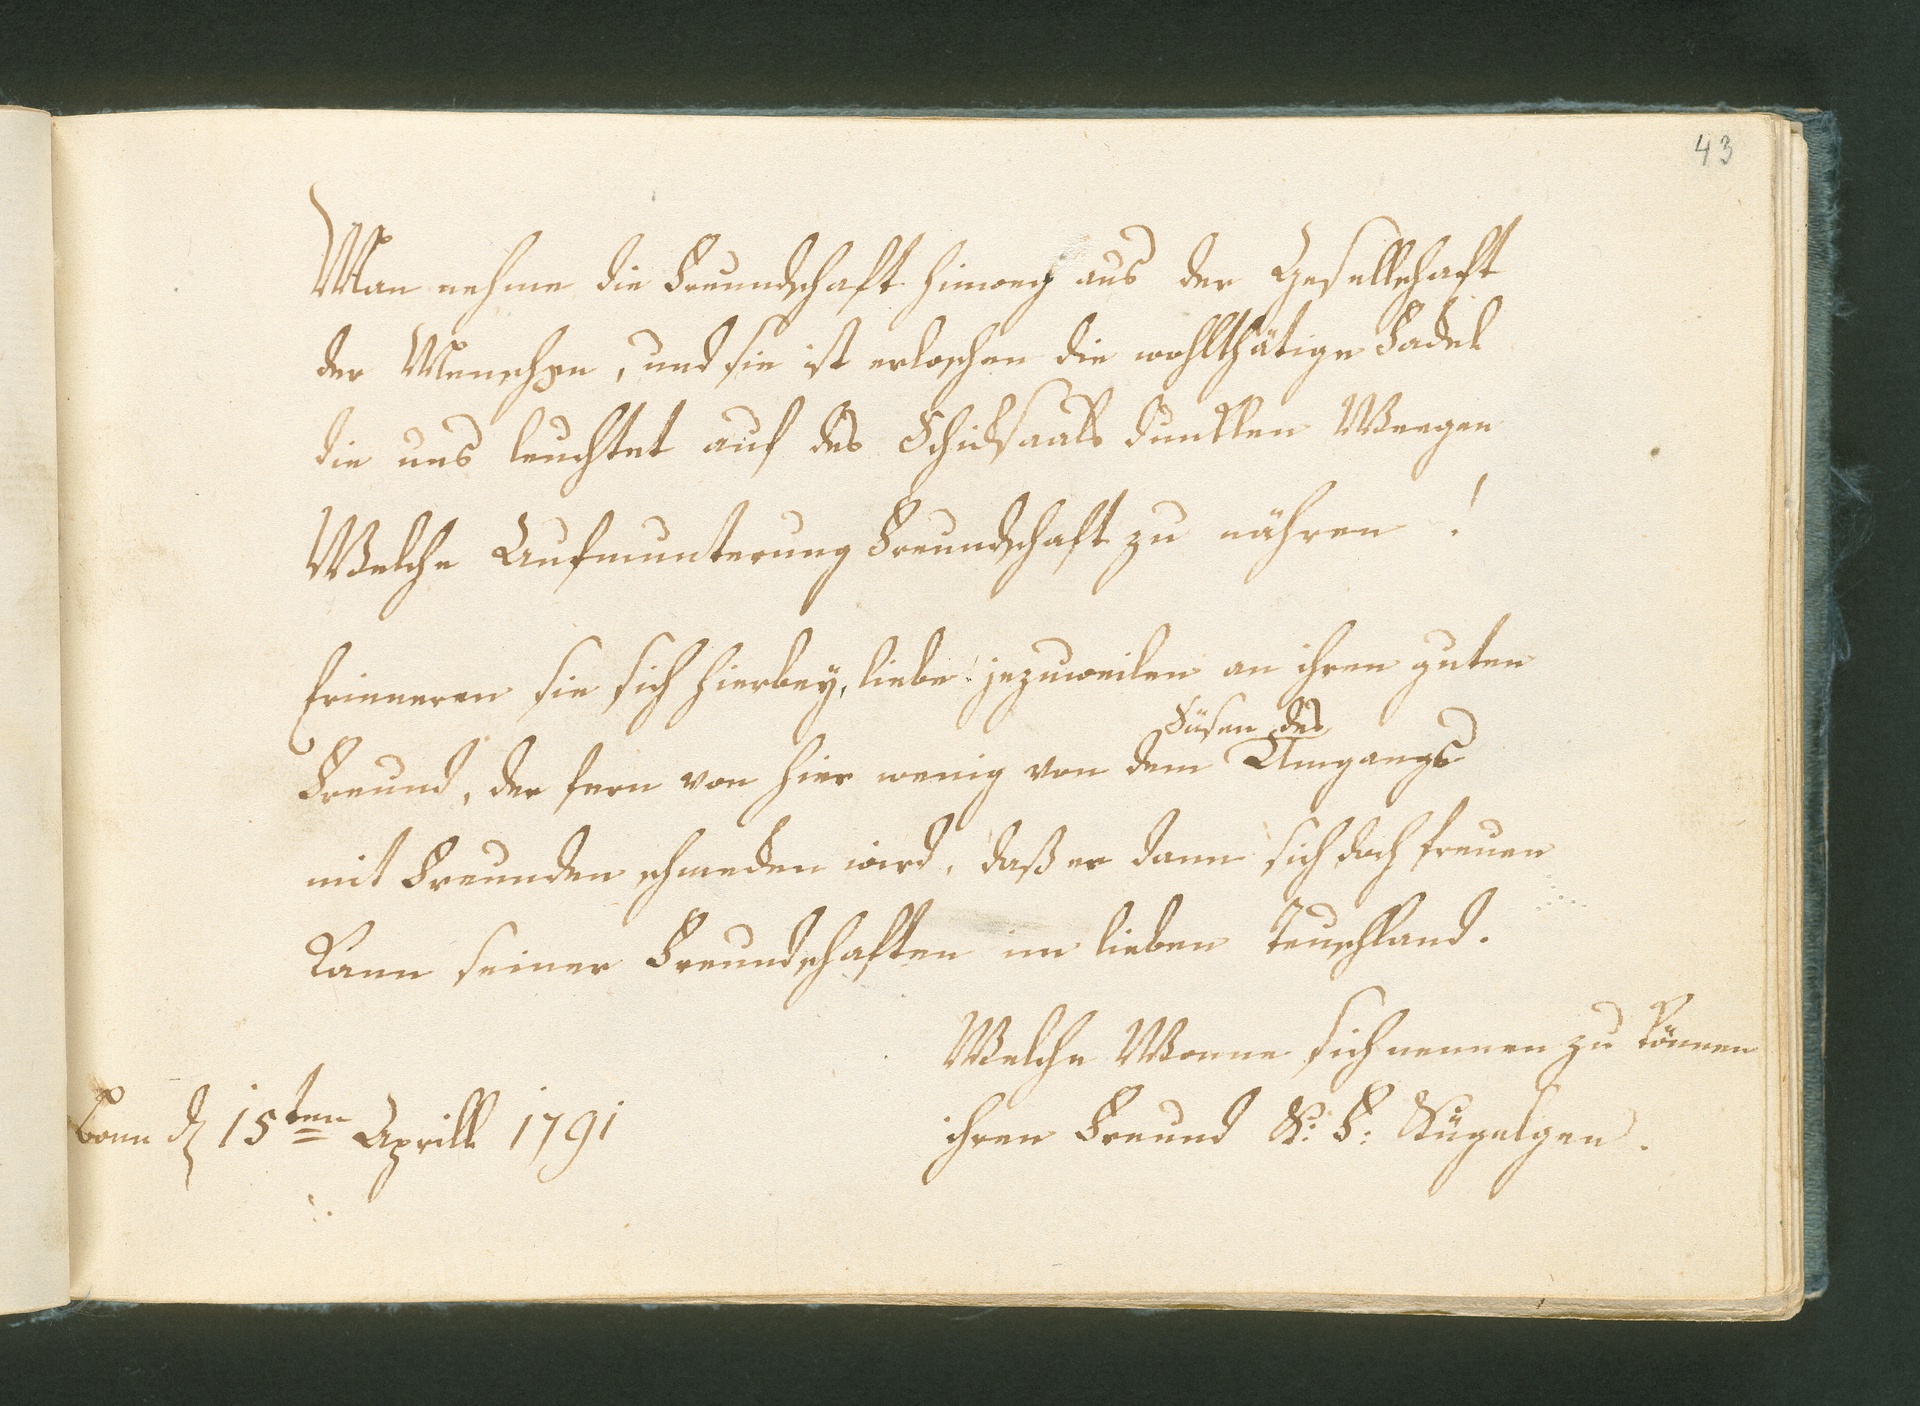 43
Man nehme die Freundschaft hinweg aus der Gesellschaft
der Menschen, und sie ist erloschen die wohlthätige Fackel
die uns leuchtet auf des Schicksaals dunklen Weegen
Welche Aufmunterung Freundschaft zu nähren !
Erinneren sie sich hierbey, liebe jezuweilen an ihren guten
Süsen des
Freund, der fern von hier wenig von dem Umgangs
mit Freunden schmecken wird, daß er dann sich doch freuen
kann seiner Freundschaften im lieben Teuschland.
Welche Wonne sich nennen zu können
Bonn d 15ten Aprill 1791
ihren Freund K: F: Kügelgen.